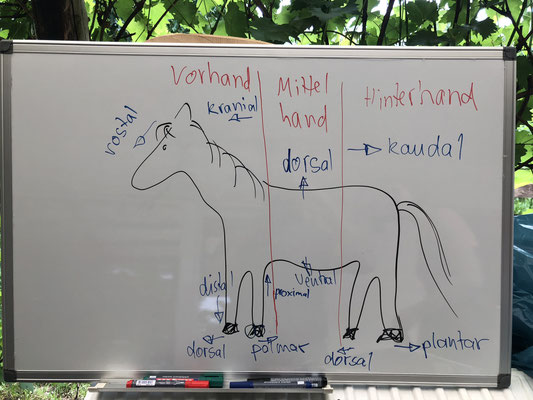 Vorhand
Mittel
hand
Hinterhand
kranial
rostal
dorsal
kaudal
distal
proximal
ventral
dorsal
palmar
dorsal
plantar